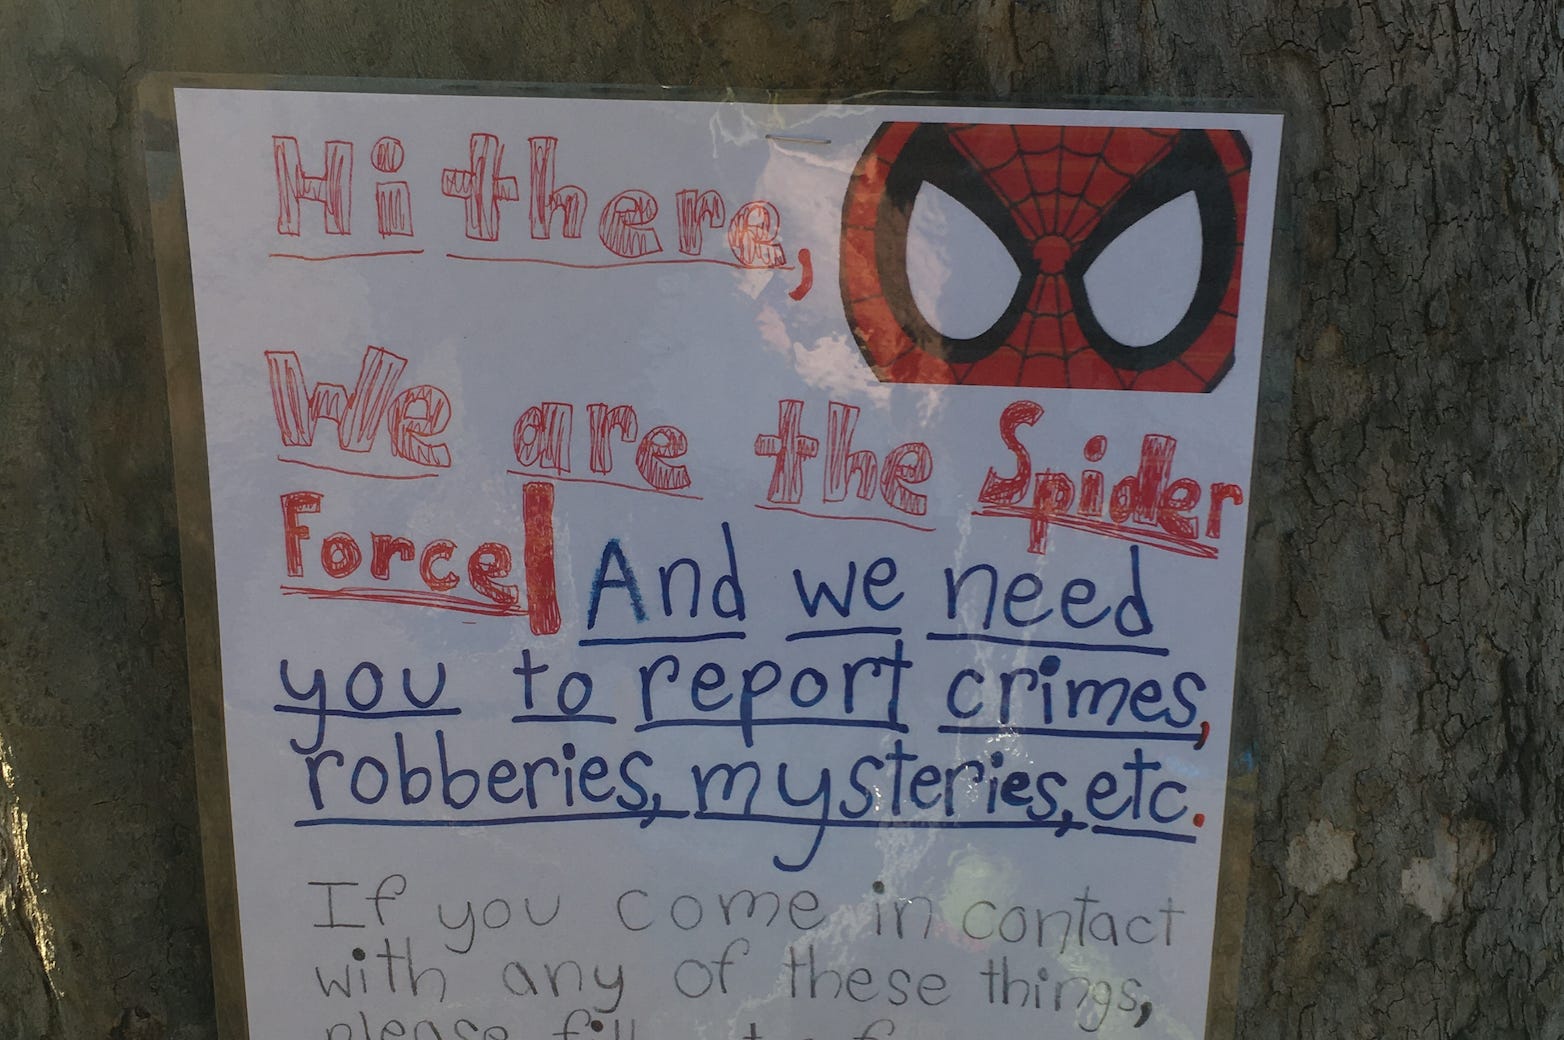 Hi there,
We are the Spider
Force
And we need
you to report crimes,
robberies, mysteries, etc.
If you come in contact
with any of these things,
please fill